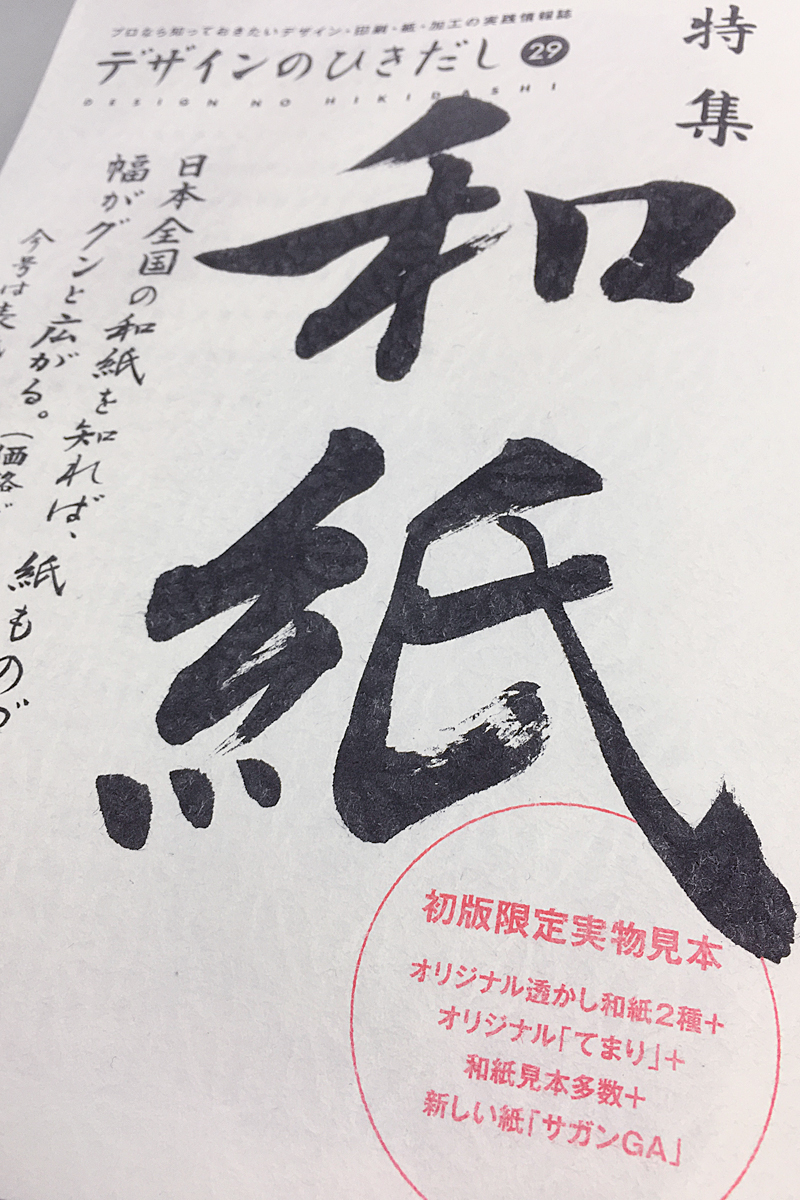 プロなら知っておきたいデザイン・印刷・紙・加工の実践情報誌
デザインのひきだし 29
DESIGN NO HIKIDASHI
特集
和紙
日本全国の和紙を知れば、紙ものづ
幅がグンと広がる。(価格が
今号は表
初版限定実物見本
オリジナル透かし和紙2種+
オリジナル「てまり」+
和紙見本多数+
新しい紙「サガンGA」